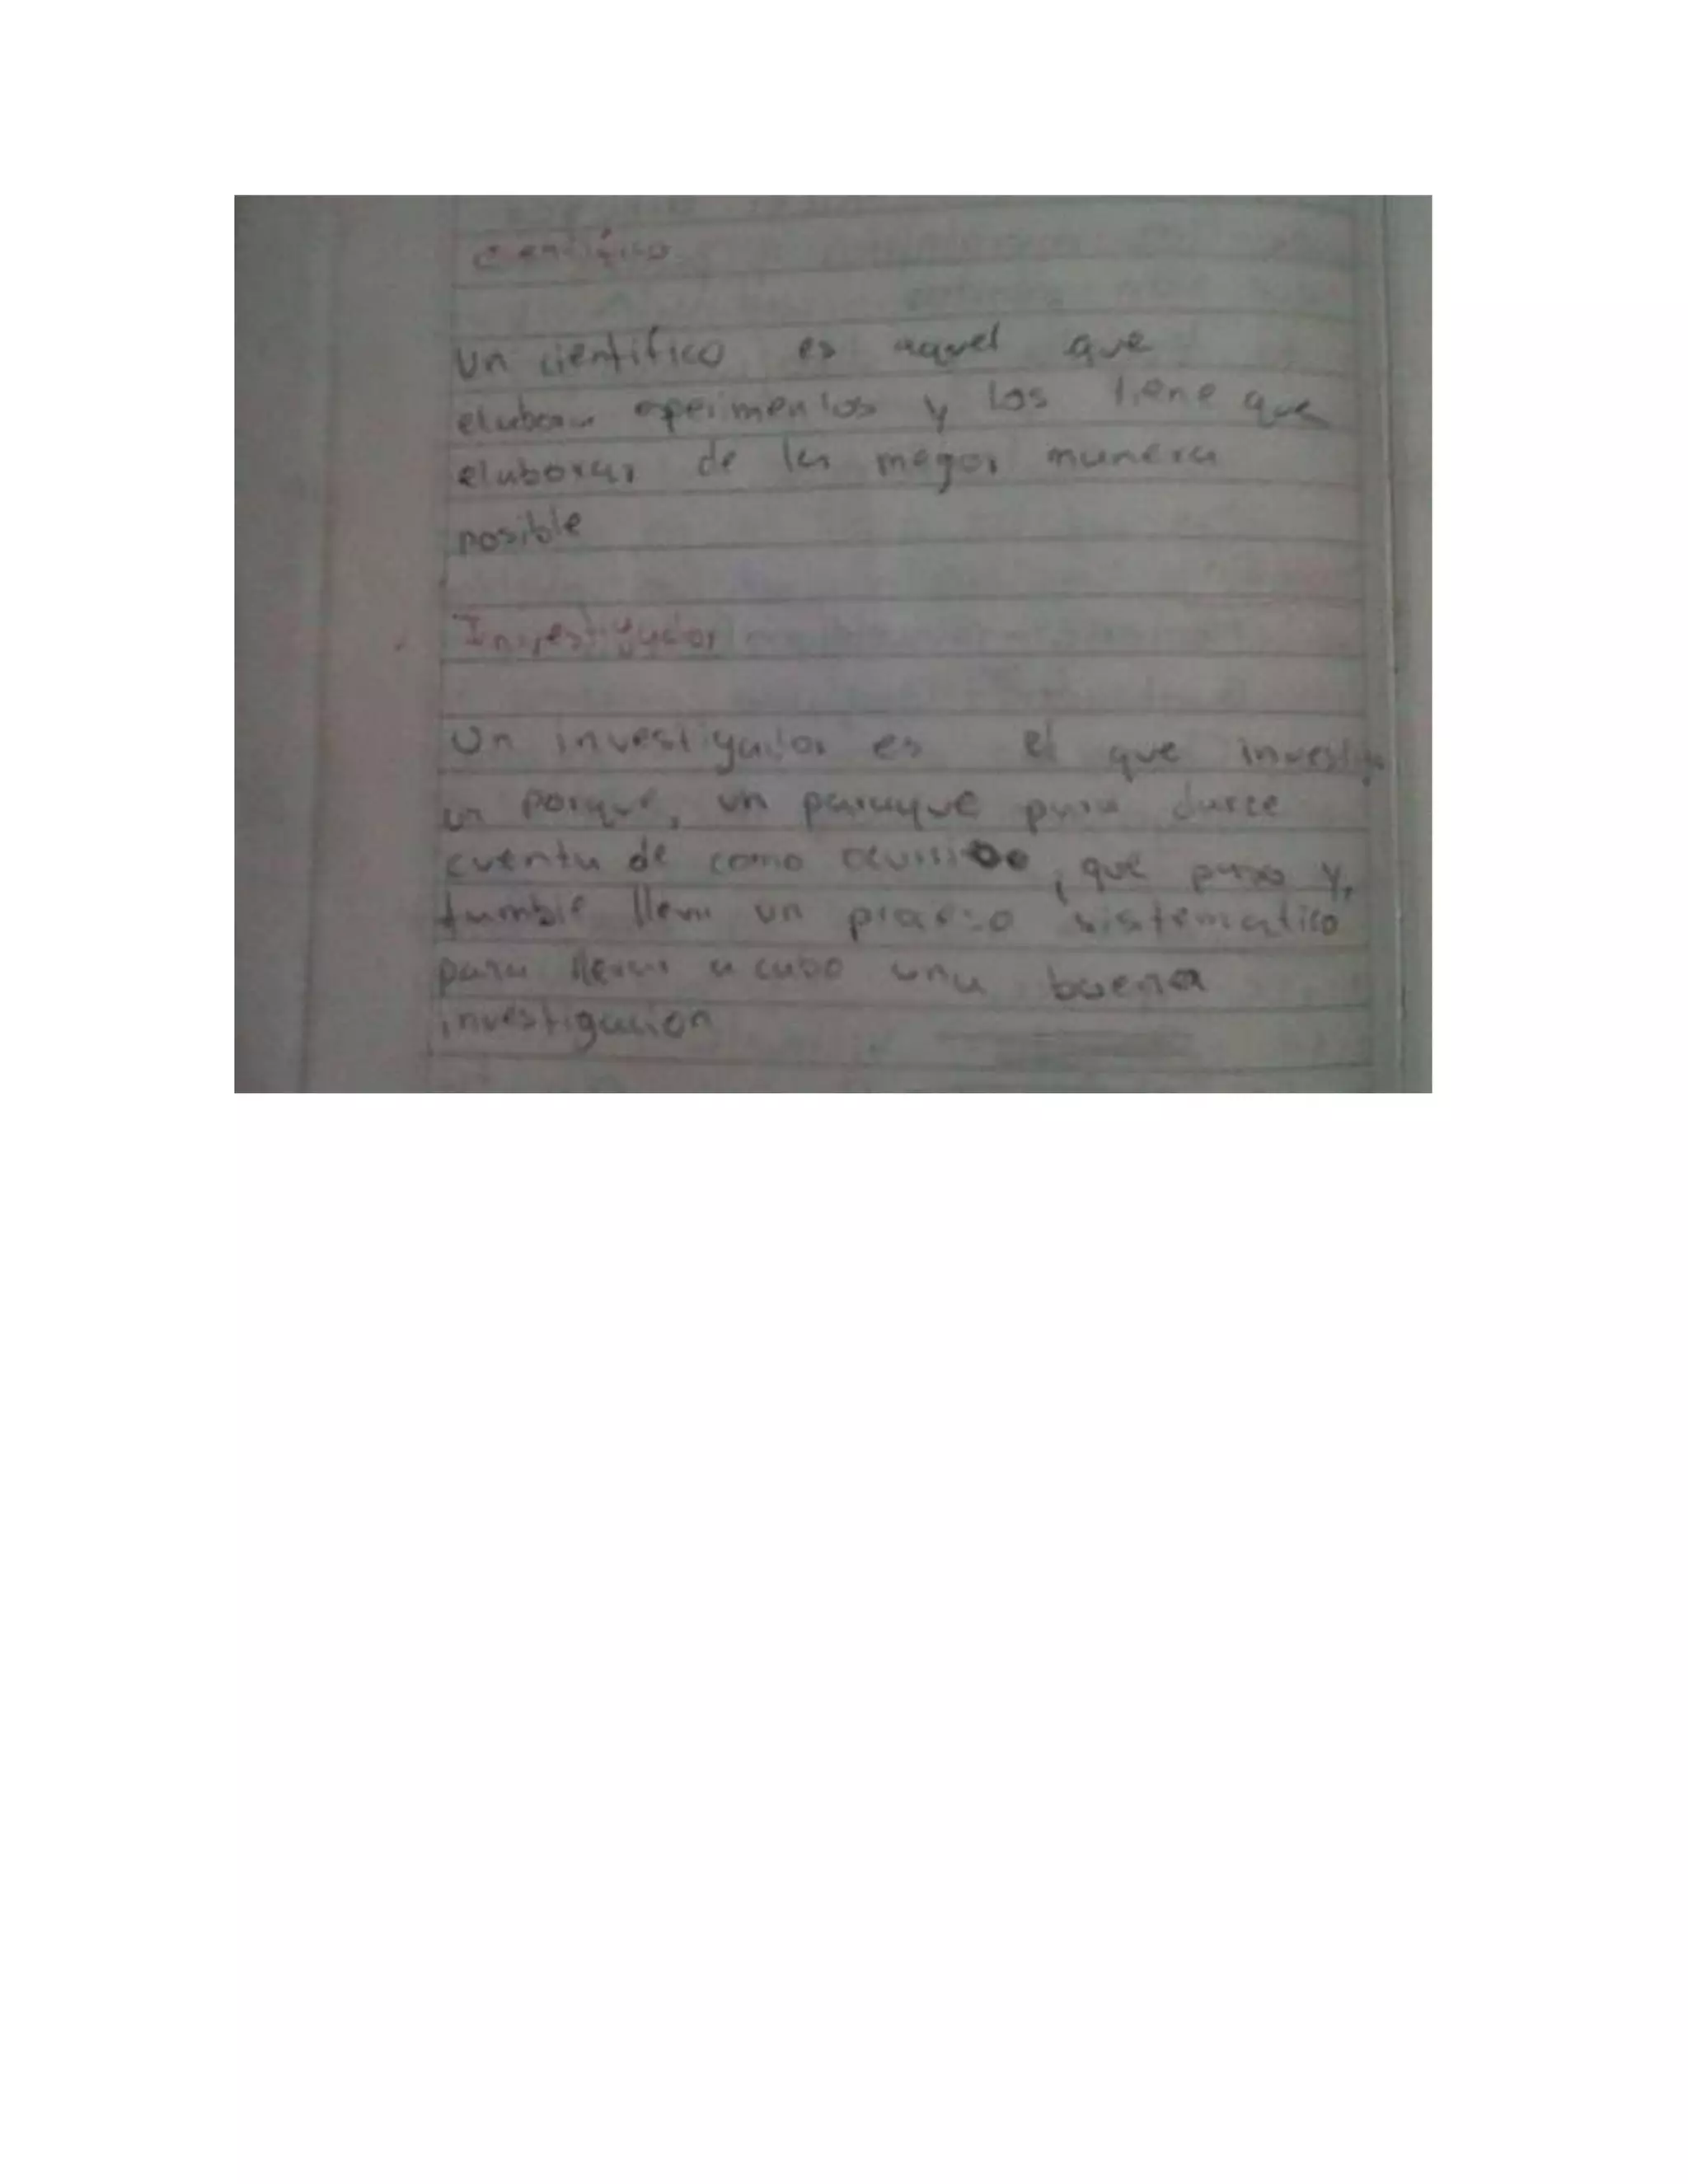 Científico
Un científico es aquel que
elaboran esperimentos y los tiene que
elaborar de la megor manera
posible
Investigador
Un investigador es el que investiga
un porque, un paraque para darce
cuenta de como ocurrido, que paso y,
tambie lleva un proceso sistematico
para llevar a cabo una buena
investigacion